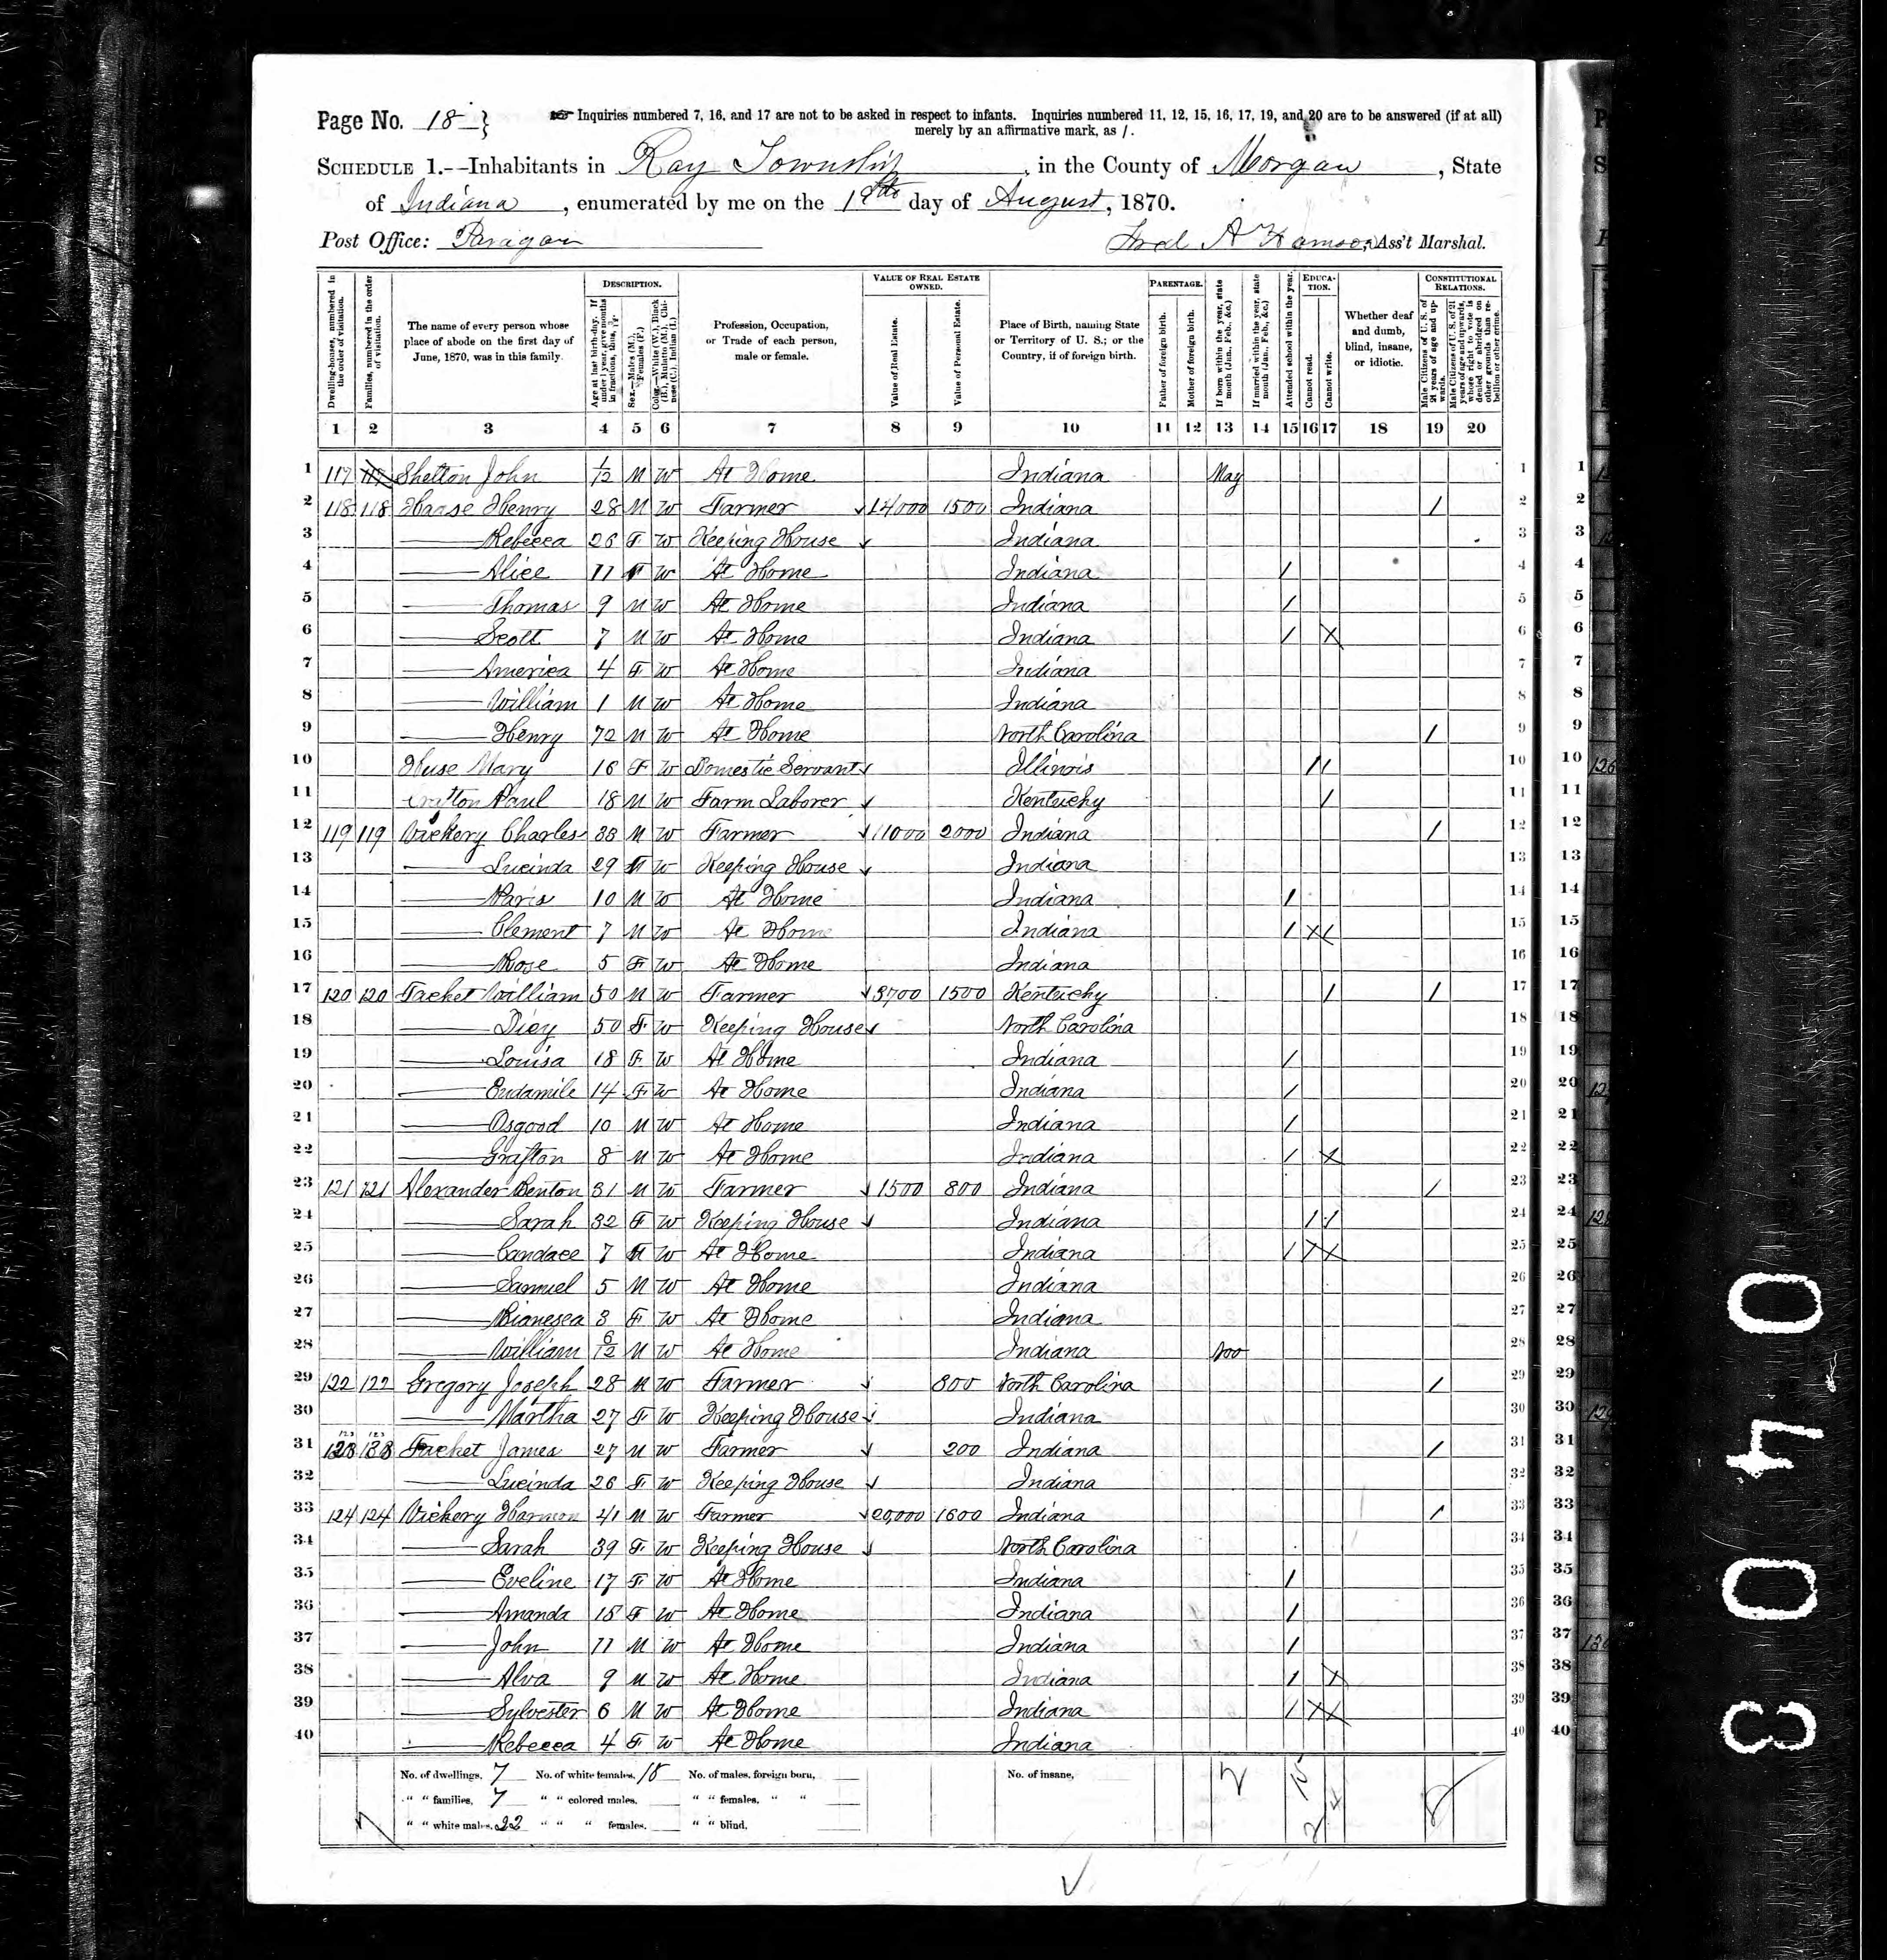 Page No. 18 }
Inquiries numbered 7, 16, and 17 are not to be asked in respect to infants. Inquiries numbered 11, 12, 15, 16, 17, 19, and 20 are to be answered (if at all)
merely by an affirmative mark, as /.
SCHEDULE 1.—Inhabitants in Ray Township, in the County of Morgan, State
of Indiana, enumerated by me on the 19th day of August, 1870.
Post Office: Paragon
Ass't Marshal.
Dwelling-houses, numbered in the order of visitation.
Families, numbered in the order of visitation.
The name of every person whose place of abode on the first day of June, 1870, was in this family.
DESCRIPTION.
Age at last birth-day. If under 1 year, give months in fractions, thus, 3/12
Sex.—Males (M.), Females (F.)
Color.—White (W.), Black (B.), Mulatto (M.), Chinese (C.), Indian (I.)
Profession, Occupation, or Trade of each person, male or female.
VALUE OF REAL ESTATE OWNED.
Value of Real Estate.
Value of Personal Estate.
Place of Birth, naming State or Territory of U. S.; or the Country, if of foreign birth.
PARENTAGE.
Father of foreign birth.
Mother of foreign birth.
If born within the year, state month (Jan., Feb., &c.)
If married within the year, state month (Jan., Feb., &c.)
Attended school within the year.
EDUCATION.
Cannot read.
Cannot write.
Whether deaf and dumb, blind, insane, or idiotic.
CONSTITUTIONAL RELATIONS.
Male Citizens of U. S. of 21 years of age and upwards.
Male Citizens of U. S. of 21 years of age and upwards, whose right to vote is denied or abridged on other grounds than rebellion or other crime.
1 2 3 4 5 6 7 8 9 10 11 12 13 14 15 16 17 18 19 20
1 117 117 Shelton John 1/12 M W At Home Indiana May 1
2 118 118 Henry 28 M W Farmer 14000 1500 Indiana / 2
3 Rebecca 26 F W Keeping House Indiana 3
4 Alice 11 F W At Home Indiana / 4
5 Thomas 9 M W At Home Indiana / 5
6 Scott 7 M W At Home Indiana / X 6
7 America 4 F W At Home Indiana 7
8 William 1 M W At Home Indiana 8
9 Henry 72 M W At Home North Carolina / 9
10 Huse Mary 16 F W Domestic Servant Illinois / / 10
11 Paul 18 M W Farm Laborer Kentucky / 11
12 119 119 Vickery Charles 33 M W Farmer 11000 2000 Indiana / 12
13 Lucinda 29 F W Keeping House Indiana 13
14 Paris 10 M W At Home Indiana / 14
15 Clement 7 M W At Home Indiana / X X 15
16 Rose 5 F W At Home Indiana 16
17 120 120 Tacket William 50 M W Farmer 3700 1500 Kentucky / / 17
18 Dicy 50 F W Keeping House North Carolina 18
19 Louisa 18 F W At Home Indiana / 19
20 Eudamile 14 F W At Home Indiana / 20
21 Osgood 10 M W At Home Indiana / 21
22 Grafton 8 M W At Home Indiana / X 22
23 121 121 Alexander Benton 31 M W Farmer 1500 800 Indiana / 23
24 Sarah 32 F W Keeping House Indiana / / 24
25 Candace 7 F W At Home Indiana / X X 25
26 Samuel 5 M W At Home Indiana 26
27 3 F W At Home Indiana 27
28 William M W At Home Indiana Nov 28
29 122 122 Gregory Joseph 28 M W Farmer 800 North Carolina / 29
30 Martha 27 F W Keeping House Indiana 30
123 123
31 Tacket James 27 M W Farmer 200 Indiana / 31
32 Lucinda 26 F W Keeping House Indiana 32
33 124 124 Vickery Harmon 41 M W Farmer 20,000 1600 Indiana / 33
34 Sarah 39 F W Keeping House North Carolina 34
35 Eveline 17 F W At Home Indiana / 35
36 Amanda 15 F W At Home Indiana / 36
37 John 11 M W At Home Indiana / 37
38 Alva 9 M W At Home Indiana / X 38
39 Sylvester 6 M W At Home Indiana / X X 39
40 Rebecca 4 F W At Home Indiana 40
No. of dwellings, 7 No. of white females, 18 No. of males, foreign born, No. of insane,
" " families, 7 " " colored males, " " females, " "
" " white males, 22 " " " females, " " blind,
0403